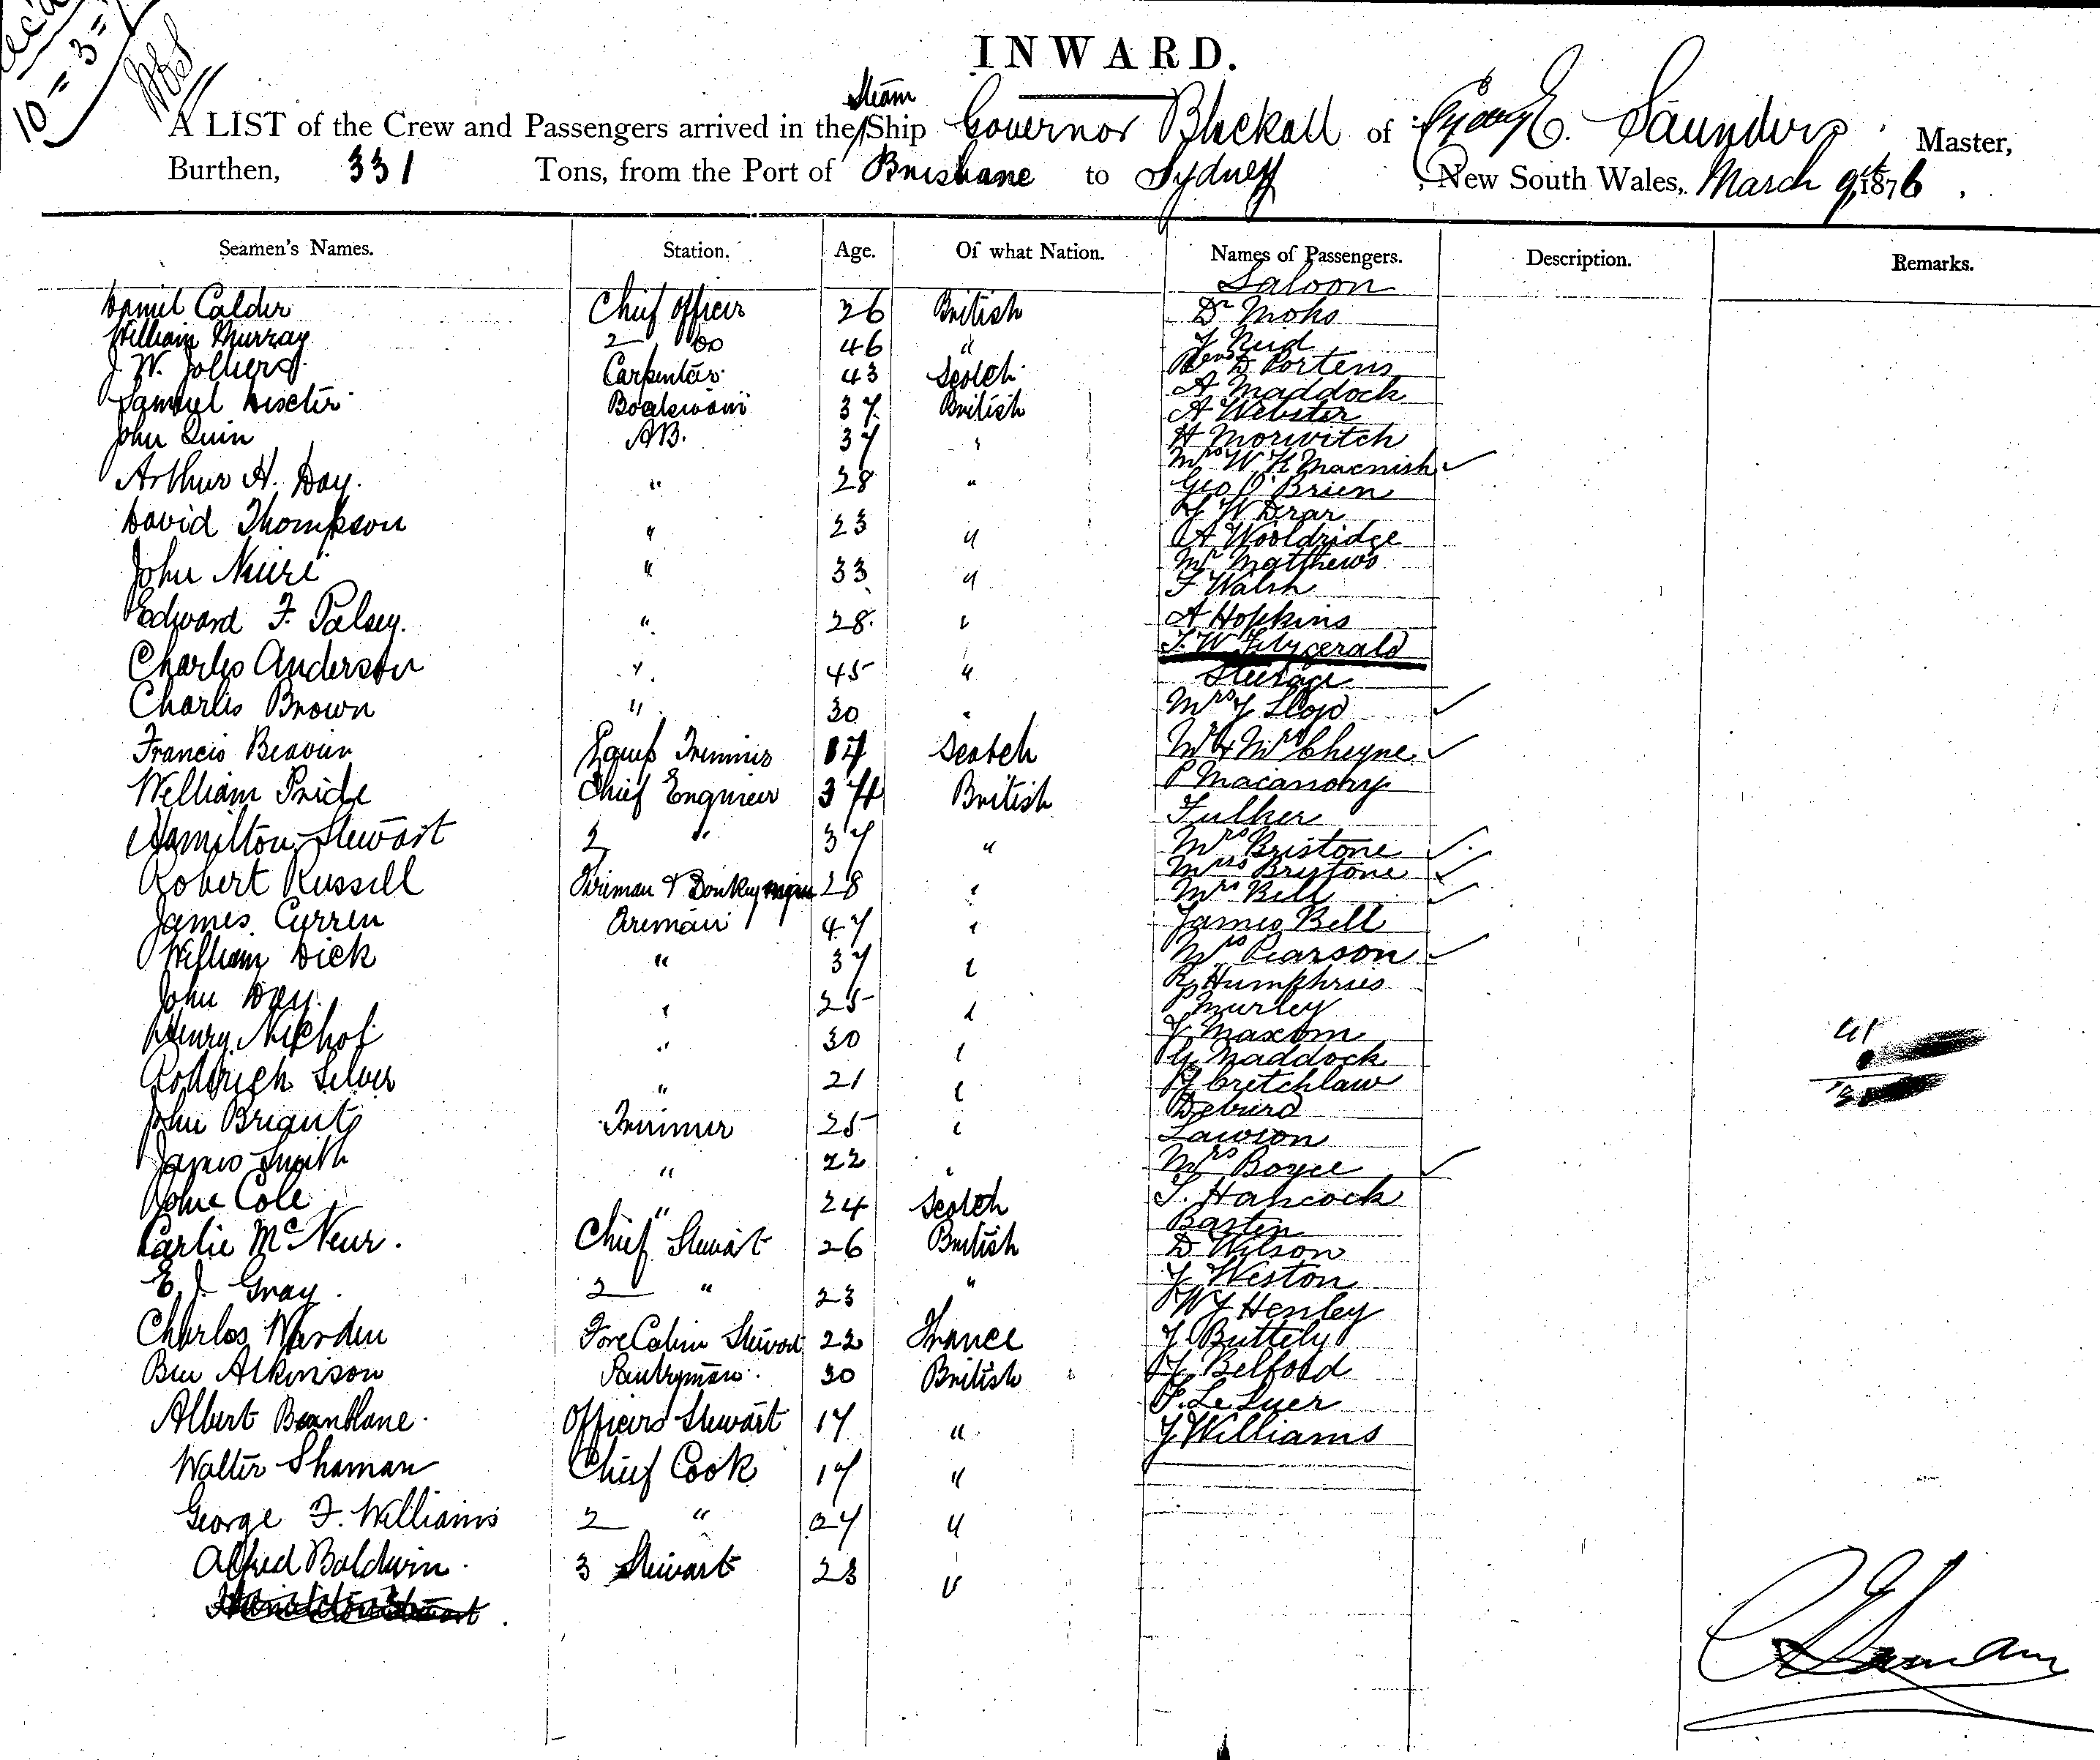 10 = 3 =
INWARD.
A LIST of the Crew and Passengers arrived in the Steam Ship Governor Blackall of E. Saunders, Master,
Burthen, 331 Tons, from the Port of Brisbane to Sydney, New South Wales, March 9th 1876,
Seamen's Names. Station. Age. Of what Nation. Names of Passengers. Description. Remarks.
Daniel Calder Chief Officer 26 British
William Murray 2 do 46 "
J. W. Carpenter 43 Scotch
Samuel Boatswain 37 British
John Quin AB. 37 "
Arthur H. Day. " 28 "
David Thompson " 23 "
John " 33 "
Edward F. Palsey. " 28 "
Charles Anderson " 45 "
Charles Brown " 30 "
Francis Trimmer 17 Scotch
William Pride Chief Engineer 34 British
Hamilton Stewart 2 " 37 "
Robert Russell Fireman & Donkeyman 28 "
James Curren Fireman 47 "
William Dick " 37 "
John Day. " 25 "
Henry " 30 "
Silver " 21 "
John Briant Trimmer 25 "
James Smith " 22 "
John Cole " 24 Scotch
McNeur. Chief Stewart 26 British
E. J. Gray. 2 " 23 "
Charles Warden Fore Cabin Stewart 22 France
Ben Atkinson Pantryman 30 British
Albert Officers Stewart 17 "
Walter Shaman Chief Cook 17 "
George F. Williams 2 " 27 "
Alfred Baldwin. 3 Stewart 23 "
Saloon
Dr Mohs
J Reid
Revd D Portens
A Maddock
A Webster
H Morwitch
Mrs W K Macnish
Geo O'Brien
J W Drar
A Wooldridge
Mr Matthews
F Walsh
A Hopkins
T. W Fitzgerald
Steerage
Mrs J Lloyd
Mr & Mrs Cheyne
P Macanohy
Fulker
Mrs Bristone
Miss Bristone
Mrs Bell
James Bell
Mrs Pearson
R Humphries
P Murley
J Maxom
G Maddock
J Cretchlaw
Deburd
Lawson
Mrs Boyce
T. Hancock
Barten
D Wilson
J Weston
W J Henley
J Buttely
J Belford
F. Le Luer
J Williams
41